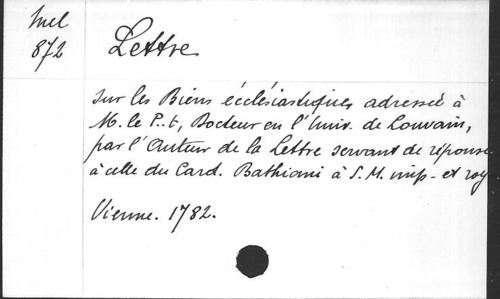 Mel
872
Lettre
sur les Biens ecclésiastiques adressée à
M. le P..t, Docteur en l'Univ. de Louvain,
par l'Auteur de la Lettre servant de réponse
à celle du Card. Bathiani à S. M. imp. et roy
Vienne. 1782.